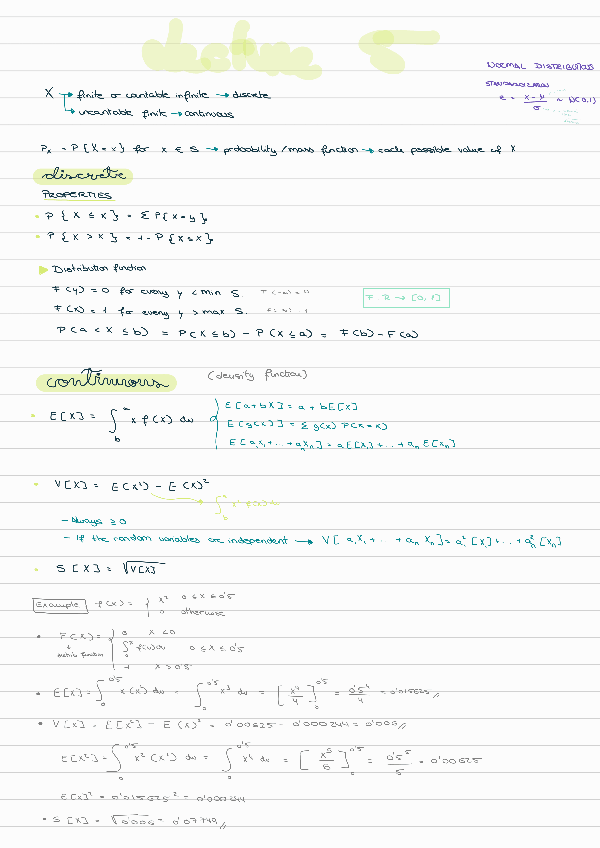 NORMAL DISTRIBUTION
STANDARDIZATION
z = (x - μ)/σ ~ N(0,1)
X → finite or cantable infinite → discrete
→ uncantable finite → continuous
Px = P{X=x} for x ∈ S → probability/mass function → each possible value of X
discrete
PROPERTIES
• P{X ≤ x} = Σ P{X=y}
• P{X > x} = 1 - P{X≤x}
▶ Distribution function
F(y) = 0 for every y < min S. F(-∞) = 0
F: R → [0,1]
F(x) = 1 for every y > max S.
P(a < X ≤ b) = P(X ≤ b) - P(X ≤ a) = F(b) - F(a)
continuous (density function)
• E[X] = ∫ x f(x) dx
E[a+bX] = a + bE[X]
E[g(x)] = Σ g(x) P(X=x)
E[a₁X₁+...+aₙXₙ] = a₁E[X₁]+...+aₙE[Xₙ]
• V[X] = E(X²) - E(X)²
- Always ≥ 0
- If the random variables are independent → V[a₁X₁+...+aₙXₙ] = a₁²[X₁]+...+aₙ²[Xₙ]
• S[X] = √V[X]
Example f(x) = { x² 0≤x≤0'5
0 otherwise
• F(x) = { 0 x<0
∫ f(x)dx 0≤x≤0'5
1 x>0'5
• E[X] = ∫₀^0'5 x(x²) dx = ∫₀^0'5 x³ dx = [x⁴/4]₀^0'5 = 0'5⁴/4 = 0'015625//
• V[X] = E[X²] - E(X)² = 0'00625 - 0'000244 = 0'006//
E[X²] = ∫₀^0'5 x²(x²) dx = ∫₀^0'5 x⁴ dx = [x⁵/5]₀^0'5 = 0'5⁵/5 = 0'00625
E[X]² = 0'015625² = 0'000244
• S[X] = √0'006 = 0'07749//